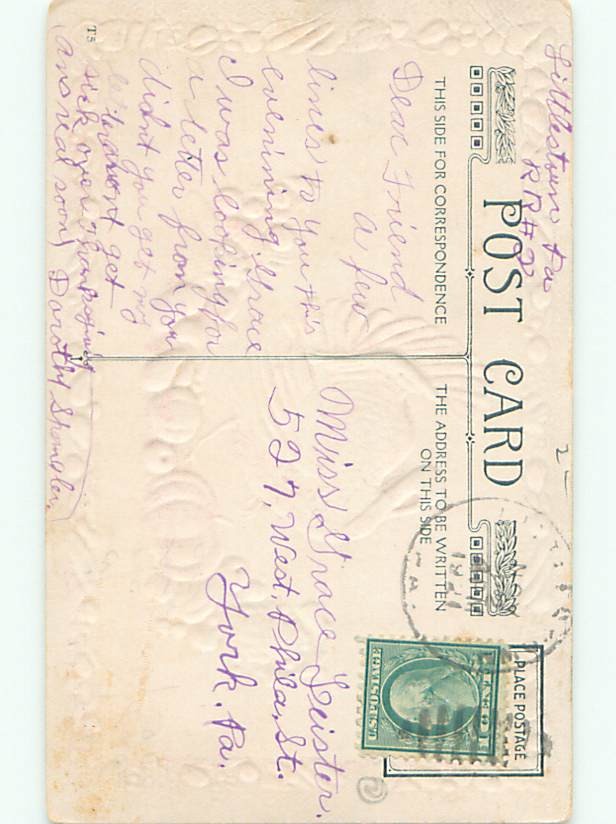 Littlestown Pa
RR#2
POST CARD
THIS SIDE FOR CORRESPONDENCE
THE ADDRESS TO BE WRITTEN
ON THIS SIDE
PLACE POSTAGE
Dear Friend
a few
lines to you this
evenining Grace
I was looking for
a letter from you
didnt you get my
get
sick over
ans real soon) Dorothy
T5
Miss Grace Leister.
527, West, Phila, St.
York, Pa.